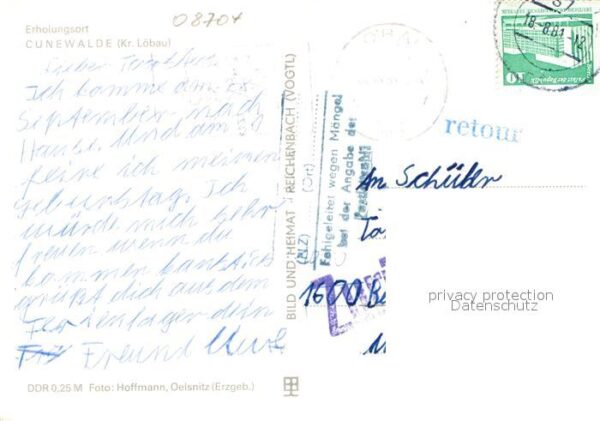 08704
Erholungsort
CUNEWALDE (Kr. Löbau)
Ich komme am
September nach
Hause. Und am
feire ich meinen
geburtstag. Ich
würde mich sehr
freuen wenn du
kommen kanst. Es
grüßt dich aus dem
Ferienlager dein
Freund Uwe
DDR 0,25 M Foto: Hoffmann, Oelsnitz (Erzgeb.)
BILD UND HEIMAT REICHENBACH (VOGTL)
Fehlgeleitet wegen Mängel
bei der Angabe der
Postleitzahl
(PLZ) (Ort)
18-8.81-12
10
retour
An Schüler
1600
privacy protection
Datenschutz